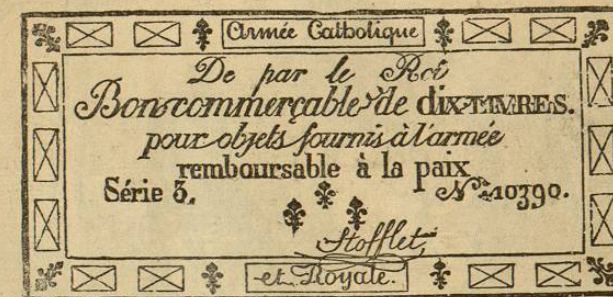 Armée Catholique
De par le Roi
Bon commerçable de dix LIVRES.
pour objets fournis à l'armée
remboursable à la paix
Série 3. N° 10390.
Stofflet
et Royale.